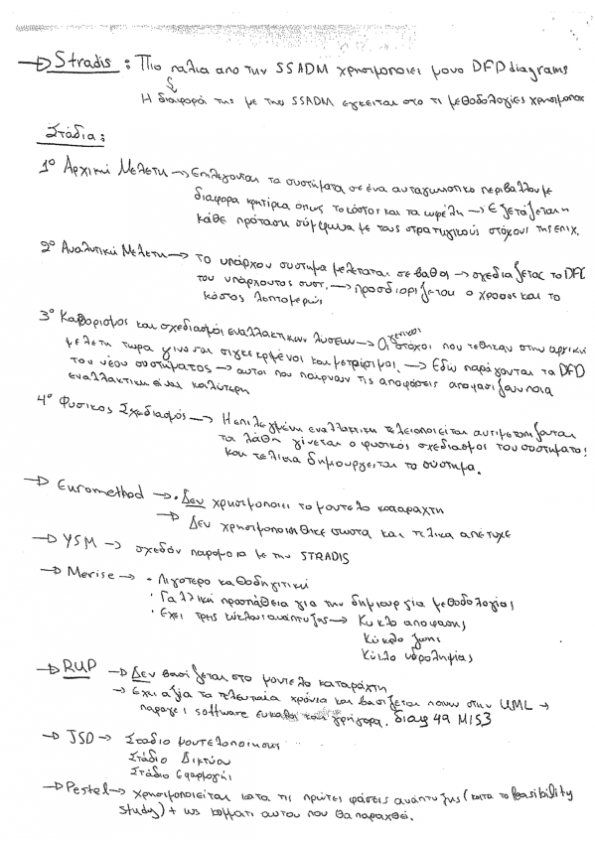 → Stradis : Πιο παλια απο την SSADM χρησιμοποιει μονο DFD diagrams
Η διαφορά της με την SSADM εγκειται στο τι μεθοδολογίες χρησιμοποι
Στάδια:
1ο Αρχική Μελετη → Επιλεγονται τα συστήματα σε ένα ανταγωνιστικο περιβαλλον με
διαφορα κριτήρια οπως το κόστος και τα ωφέλη → Εξετάζεται η
κάθε πρόταση σύμφωνα με τους στρατηγικούς στόχους της επιχ.
2ο Αναλυτική Μελετη → το υπάρχον συστημα μελεταται σε βαθος → σχεδιαζεται το DFD
του υπάρχοντος συστ. → προσδιορίζεται ο χρονος και το
κόστος λεπτομερώς
3ο Καθορισμος και σχεδιασμος εναλλακτικων λυσεων → Οι γενικοι στόχοι που τεθηκαν στην αρχική
μελετη τωρα γινονται συγκεκριμένοι και μετρίσιμοι. → Εδώ παράγονται τα DFD
του νέου συστήματος → αυτοι που παίρνουν τις αποφάσεις αποφασίζουν ποια
εναλλακτικη είναι καλύτερη
4ο Φυσικος Σχεδιασμός → Η επιλεγμένη εναλλακτικη τελειοποιείται αντιμετωπίζονται
τα λάθη γίνεται ο φυσικός σχεδιασμος του συστηματος
και τελικα δημιουργειται το σύστημα.
→ Euromethod → • Δεν χρησιμοποιει το μοντελο καταραχτη
→ Δεν χρησιμοποιηθηκε σωστα και τελικα απετυχε
→ YSM → σχεδόν παρομοια με την STRADIS
→ Merise → • Λιγοτερο καθοδηγιτικη
• Γαλλική προσπάθεια για την δημιουργία μεθοδολογίας
• Εχει τρης κύκλους ανάπτυξης → Κυκλο αποφασης
Κύκλο ζωης
Κύκλο αφαίρεσης
→ RUP → Δεν βασίζεται στο μοντελο καταράχτη
→ Εχει αξία τα τελευταία χρόνια και βασίζεται πανω στην UML →
παραγει software ευκολα και γρήγορα. διαφ 49 MIS3
→ JSD → Σταδιο μοντελοποιησης
Στάδιο Δικτύου
Στάδιο εφαρμογής
→ Pestel → χρησιμοποιείται κατα τις πρώτες φάσεις ανάπτυξης (κατα το feasibility
study) + ως κομματι αυτου που θα παραχθεί.